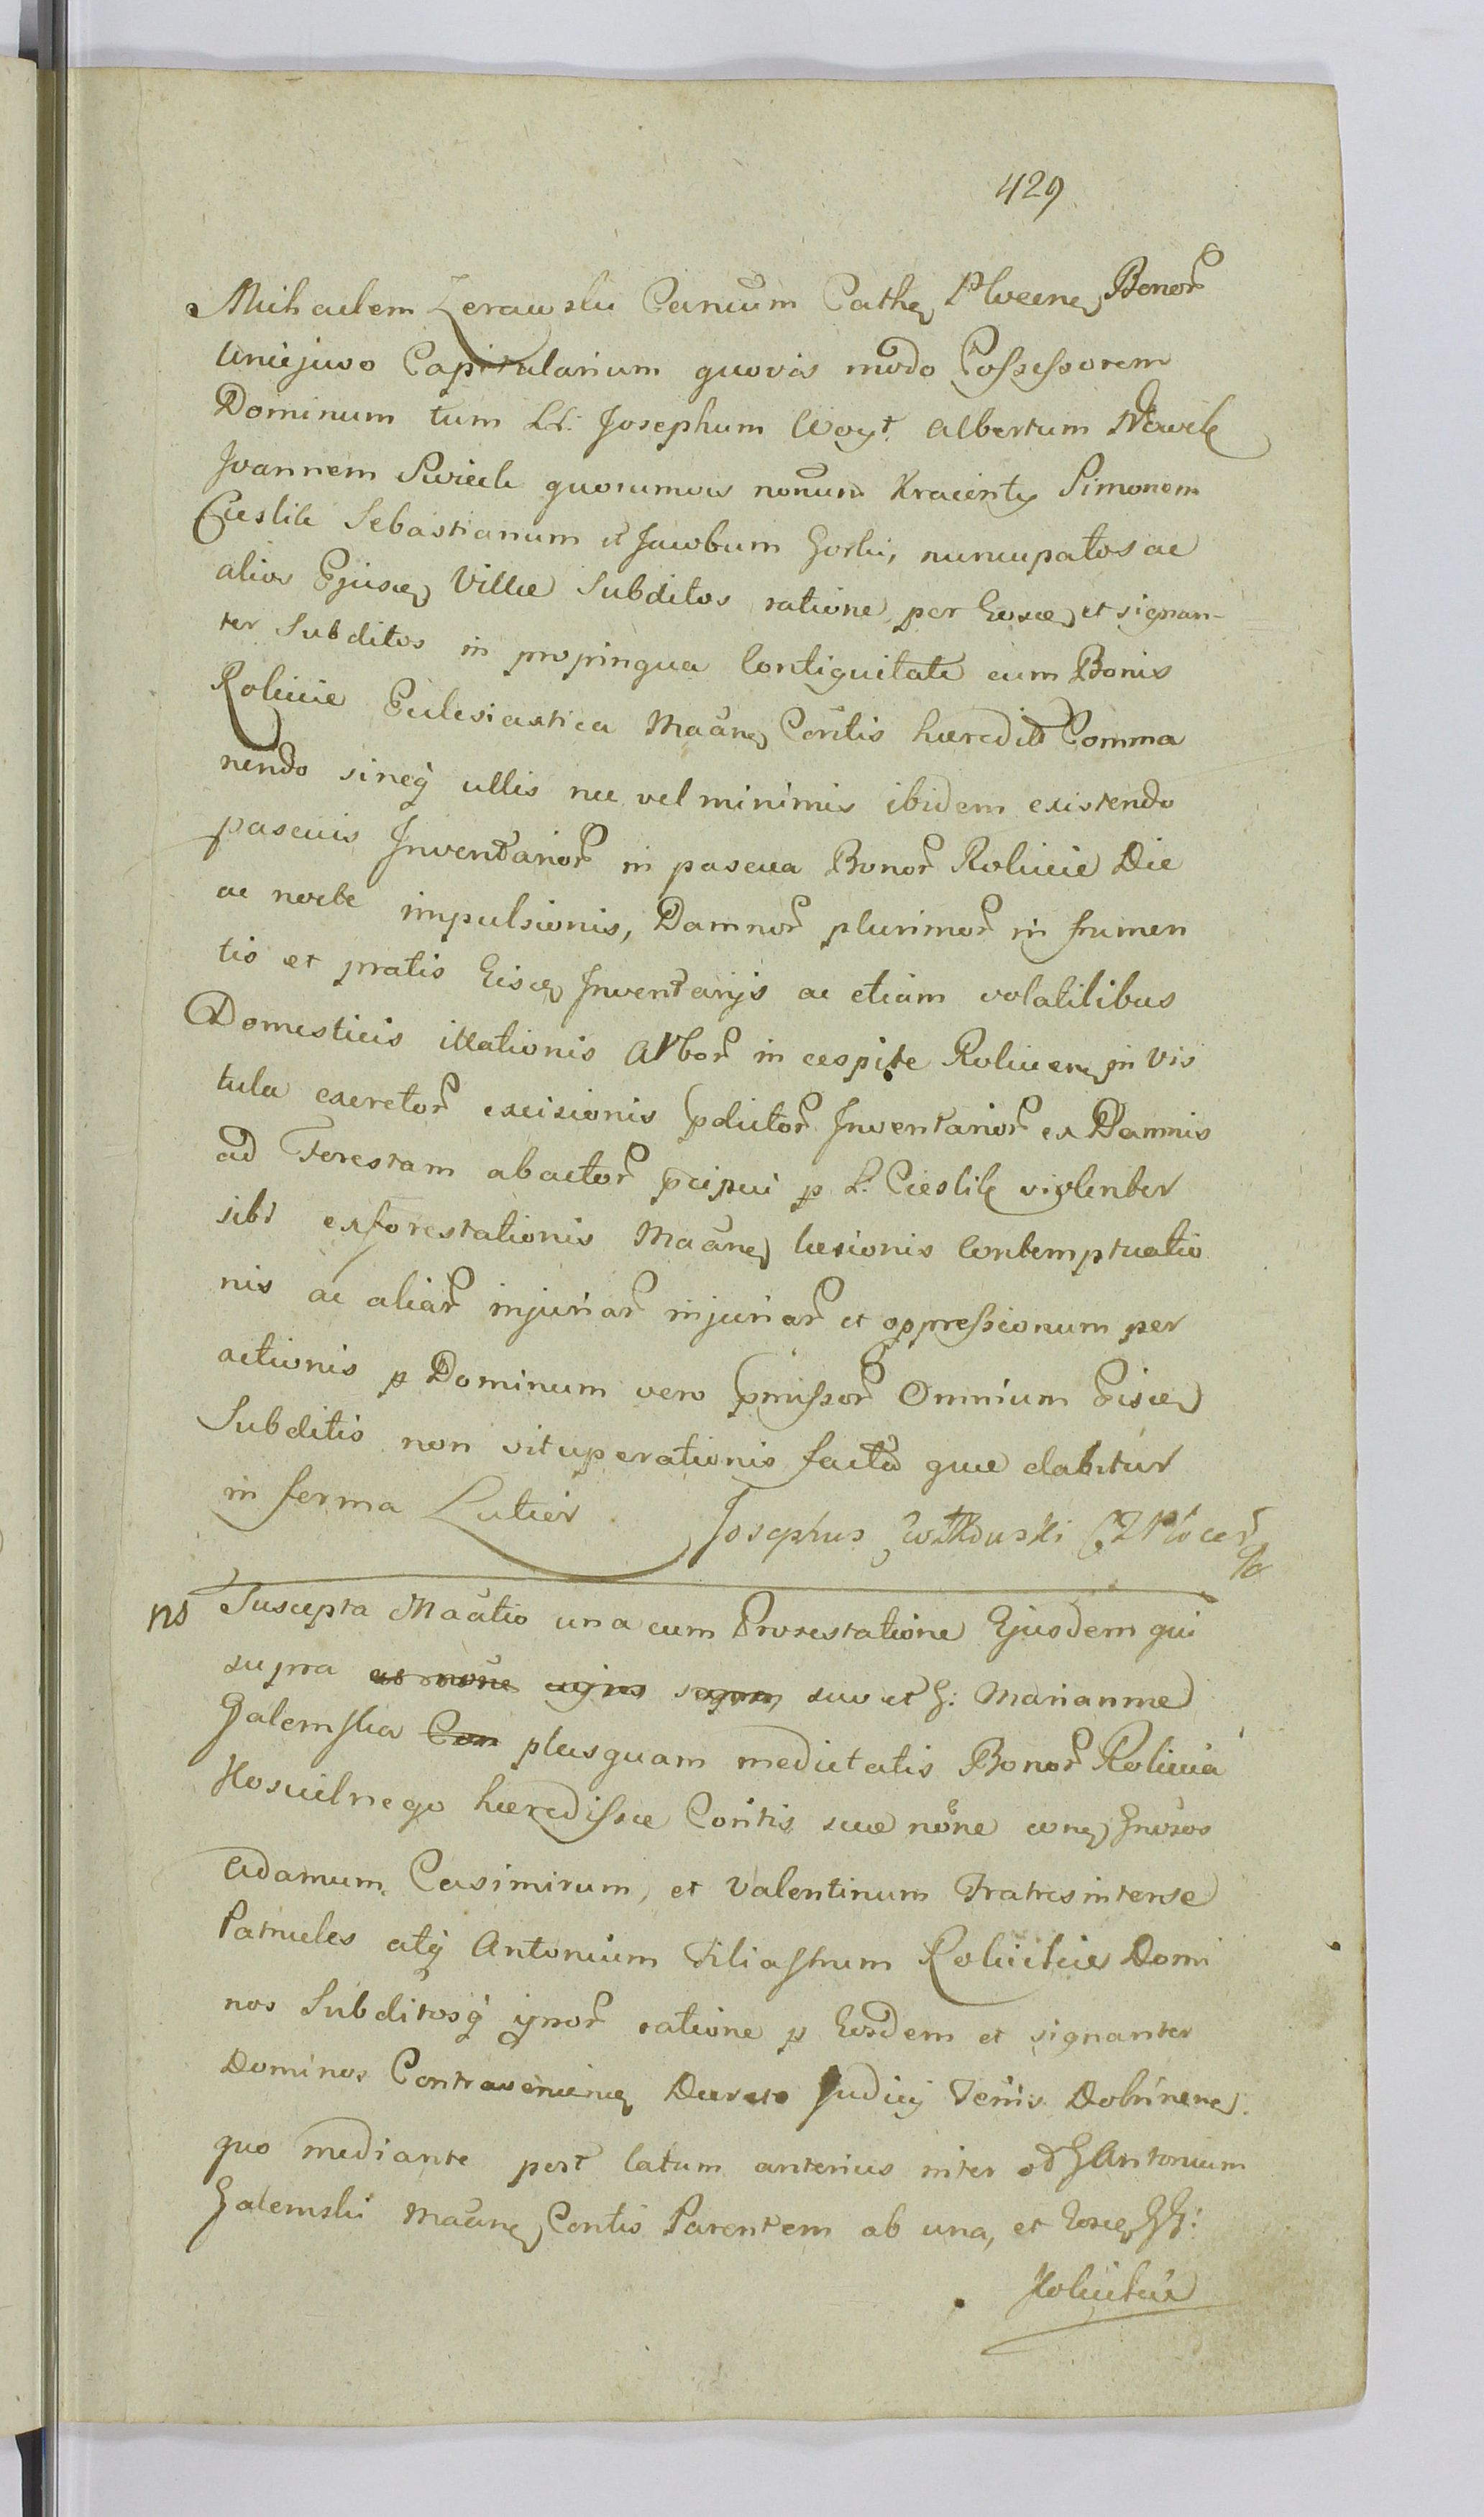 429
Michaelem Zerawski Canĉum Cathꝫ Plocenꝫ Bonoꝝ
Uniejewo Capitularium quovis modo Possessorem
Dominum tum LL: Josephum Woyt Albertum Nowik
Joannem quorumvis noñum Simonem
Cieslik Sebastianum et Jacobum Gorski, nuncupatos ac
alios Ejusdꝫ Villæ Subditos ratione per Eosdꝫ et signan-
ter Subditos in propinqua Contiguitate cum Bonis
Rokicie Ecclesiastica Maãnꝫ Contis hæredit Comma
nendo sineq ullis nec vel minimis ibidem existendo
pascuis Inventarioꝝ in pascua Bonoꝝ Rokicie Die
ac nocte impulsionis, Damnoꝝ plurimoꝝ in frumen
tis et pratis Eisdꝫ Inventarijs ac etiam volatilibus
Domesticis illationis Arboꝝ in cespite Rokicenꝫ in Vis
tula excretoꝝ excisionis pdictoꝝ Inventarioꝝ ex Damnis
ad Forestam abactoꝝ pcipui p L: Cieslik violenter
sibi exforestationis Maãnꝫ læsionis Contemptuatio
nis ac aliaꝝ injuriaꝝ injuriaꝝ et oppressionum per
actionis p Dominum vero pmissoꝝ Omnium Eisdꝫ
Subditis non vituperationis facta quæ dabitur
in forma Latior Josephus
ns Suscepta Maãtio una cum Protestatione Ejusdem qui
supra ac noñe suo et G: Mariannæ
Galemska Con plusquam medietatis Bonoꝝ Rokicia
Koscielnego hæredissæ Contis suæ noñe conꝫ Gnosos
Adamum, Casimirum, et Valentinum Fratres inter se
Patrueles atq Antonium Filiastrum Rokickie Domi
nos Subditosq ipsoꝝ ratione p Eosdem et signanter
Dominos Contravenienꝫ Decreto Judicij Terris Dobrinenꝫ.
quo mediante post latum anterius inter olG Antonium
Galemski Maãnꝫ Contis Parentem ab una, et Eosdꝫ GG:
Rokickie